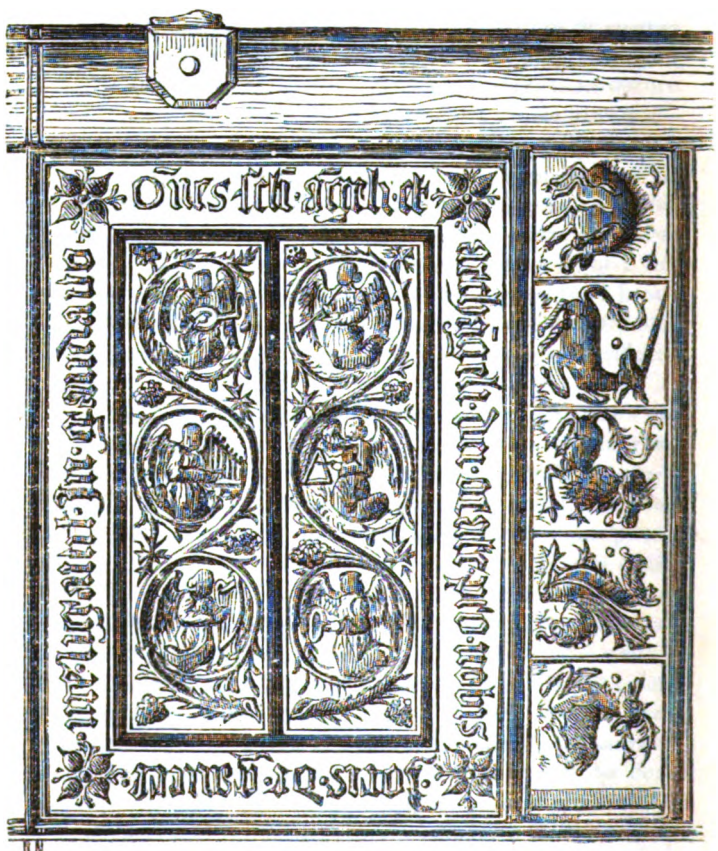 Ōnes·scti·āgeli·et·
archāgeli·dei·orate·pro·nobis
Joris·De·gauere·
me·ligauit·In·gandauo